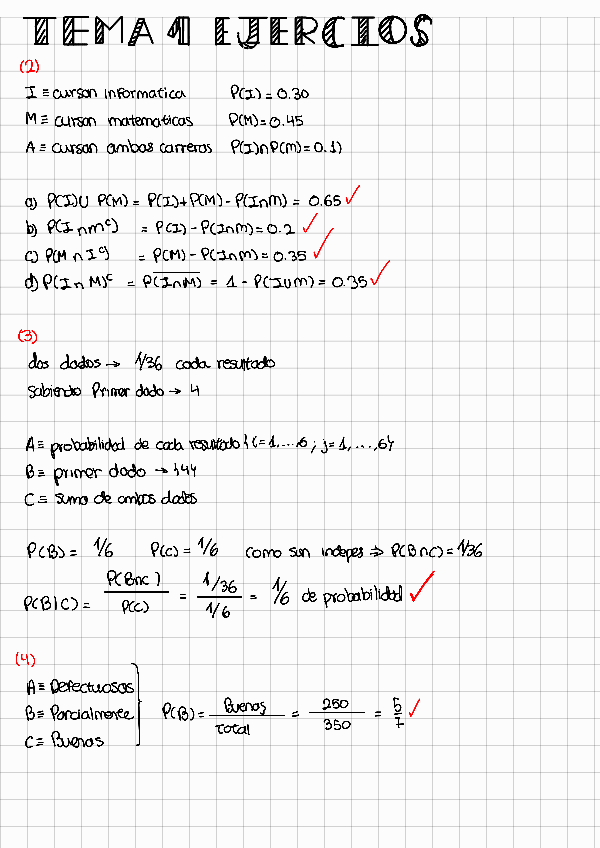 TEMA 1 EJERCIOS
(2)
I ≡ cursan informatica P(I) = 0.30
M ≡ cursan matematicas P(M)=0.45
A ≡ cursan ambas carreras P(I)∩P(M)=0.1)
a) P(I)∪ P(M) = P(I)+P(M) - P(I∩M) = 0.65 ✓
b) P(I ∩ mᶜ) = P(I) - P(I∩M) = 0.2 ✓
c) P(M ∩ Iᶜ) = P(M) - P(I∩M) = 0.35 ✓
d) P(I ∩ M)ᶜ = P(\overline{I∩M}) = 1 - P(I∪M) = 0.35 ✓
(3)
dos dados → 1/36 cada resultado
sabiendo Primer dado → 4
A ≡ probabilidad de cada resultado {i=1,...6 ; j=1,...,6}
B ≡ primer dado → {4}
C ≡ suma de ambos dados
P(B) = 1/6 P(c) = 1/6 como son indepes ⇒ P(B∩C) = 1/36
P(B|C) = P(B∩C) / P(C) = (1/36) / (1/6) = 1/6 de probabilidad ✓
(4)
A ≡ Defectuosas
B ≡ Parcialmente P(B) = Buenas / Total = 250 / 350 = 5/7 ✓
C ≡ Buenas